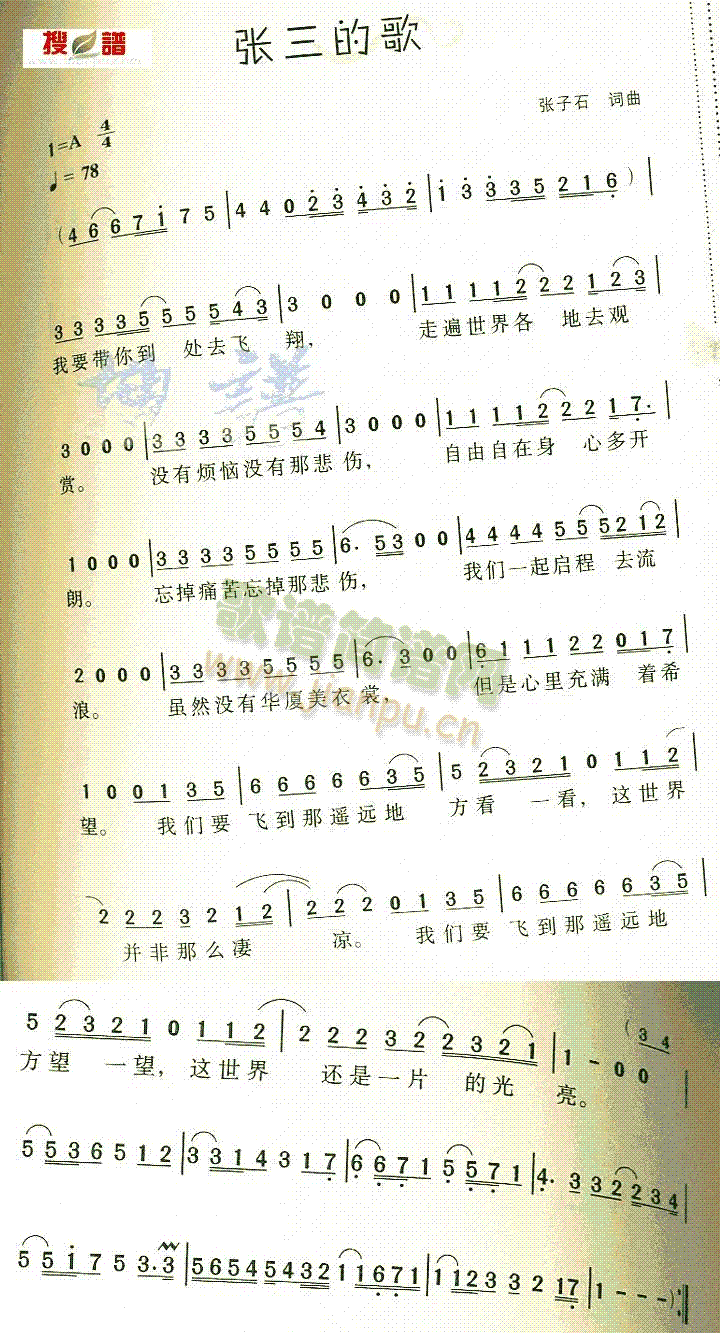 搜 谱
张三的歌
张子石 词曲
1=A 4/4
♩= 78
(4 6 6 7 1 7 5 | 4 4 0 2 3 4 3 2 | 1 3 3 3 5 2 1 6 ) |
3 3 3 3 5 5 5 5 5 4 3 | 3 0 0 0 | 1 1 1 1 2 2 2 1 2 3 |
我要带你到 处去飞 翔， 走遍世界各 地去观
3 0 0 0 | 3 3 3 3 5 5 5 4 | 3 0 0 0 | 1 1 1 1 2 2 2 1 7. |
赏。 没有烦恼没有那悲伤， 自由自在身 心多开
1 0 0 0 | 3 3 3 3 5 5 5 5 | 6. 5 3 0 0 | 4 4 4 4 5 5 5 2 1 2 |
朗。 忘掉痛苦忘掉那悲伤， 我们一起启程 去流
2 0 0 0 | 3 3 3 3 5 5 5 5 | 6. 3 0 0 | 6 1 1 1 2 2 0 1 7 |
浪。 虽然没有华厦美衣裳， 但是心里充满 着希
1 0 0 0 1 3 5 | 6 6 6 6 6 6 3 5 | 5 2 3 2 1 0 1 1 2 |
望。 我们要 飞到那遥远地 方看 一看，这世界
2 2 2 3 2 1 2 | 2 2 2 0 1 3 5 | 6 6 6 6 6 6 3 5 |
并非那么凄 凉。 我们要 飞到那遥远地
5 2 3 2 1 0 1 1 2 | 2 2 2 3 2 2 2 3 2 1 | 1 - 0 0 (3 4 |
方望 一望，这世界 还是一片 的光 亮。
5 5 3 6 5 1 2 | 3 3 1 4 3 1 7 | 6 6 7 1 5 5 7 1 | 4. 3 3 2 2 2 3 4 |
5 5 1 7 5 3. 3 | 5 6 5 4 5 4 3 2 1 1 6 7 1 | 1 1 2 3 3 2 1 7 | 1 - - - ) :||
歌谱简谱网
www.jianpu.cn